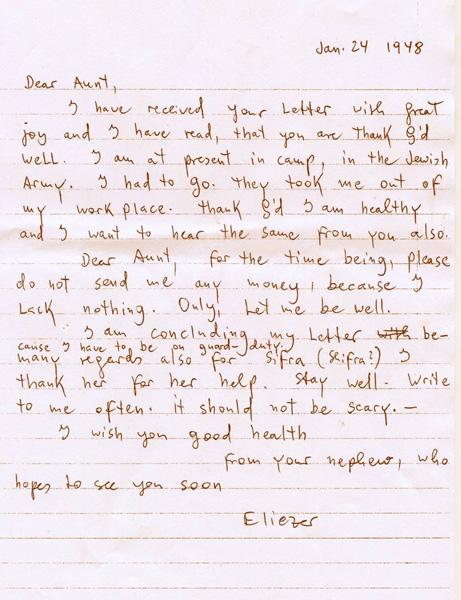 Jan. 24 1948
Dear Aunt,
I have received your Letter with great
joy and I have read, that you are thank G'd
well. I am at present in camp, in the Jewish
Army. I had to go. They took me out of
my work place. Thank G'd I am healthy
and I want to hear the same from you also.
Dear Aunt, for the time being, please
do not send me any money, because I
Lack nothing. Only, Let me be well.
I am concluding my Letter with be-
cause I have to be on guard-duty.
many regards also for Sifra (Shifra?) I
thank her for her help. Stay well. Write
to me often. it should not be scary. –
I wish you good health
From your nephew, who
hopes to see you soon
Eliezer